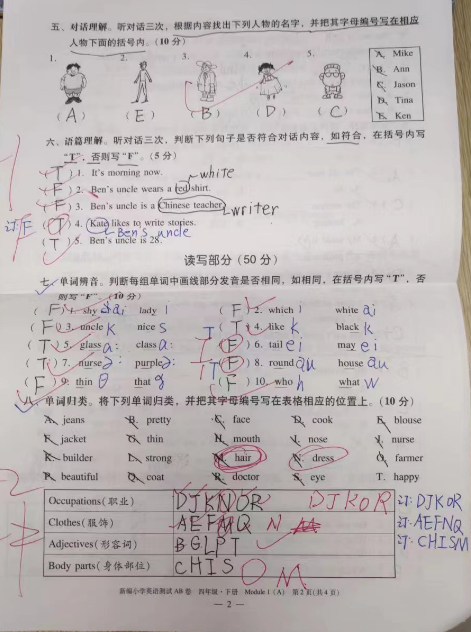 五、对话理解。听对话三次，根据内容找出下列人物的名字，并把其字母编号写在相应
人物下面的括号内。(10分)
1. 2. 3. 4. 5.
A. Mike
B. Ann
C. Jason
D. Tina
E. Ken
(A) (E) (B) (D) (C)
六、语篇理解。听对话三次，判断下列句子是否符合对话内容，如符合，在括号内写
"T"，否则写"F"。(5分)
(T) 1. It's morning now. white
(F) 2. Ben's uncle wears a red shirt.
(F) 3. Ben's uncle is a Chinese teacher. writer
订F (T) 4. Kate likes to write stories.
Ben's uncle
(T) 5. Ben's uncle is 28.
读写部分(50分)
七、单词辨音。判断每组单词中画线部分发音是否相同，如相同，在括号内写"T"，否
则写"F"。(10分)
(F) 1. shy ai lady i (F) 2. which i white ai
(F) 3. uncle k nice s T (T) 4. like k black k
(T) 5. glass a: class a: T (F) 6. tail ei may ei
(T) 7. nurse purple T (F) 8. round au house au
(F) 9. thin θ that (F) 10. who h what w
八、单词归类。将下列单词归类，并把其字母编号写在表格相应的位置上。(10分)
A. jeans B. pretty C. face D. cook E. blouse
F. jacket G. thin H. mouth I. nose J. nurse
K. builder L. strong M. hair N. dress O. farmer
P. beautiful Q. coat R. doctor S. eye T. happy
Occupations(职业) DJKNOR DJKOR 订: DJKOR
Clothes(服饰) AEFMQ N 订: AEFNQ
Adjectives(形容词) BGLPT 订: CHISM
Body parts(身体部位) CHIS M
新编小学英语测试AB卷 四年级·下册 Module 1 (A) 第2页(共4页)
— 2 —